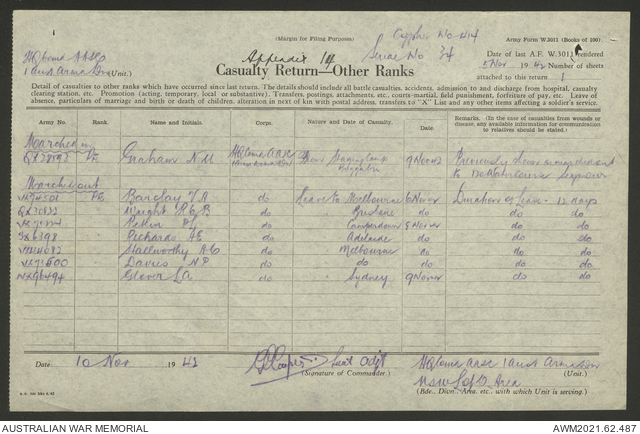 (Margin for Filing Purposes)
Cypher No 414
Army Form W.3011 (Books of 100)
Serial No 34
HQ Coma AASC
1 Aust Arma Div (Unit.)
Appendix 14
Date of last A.F. W.3011 rendered
5 Nov 1942 Number of sheets
attached to this return 1
Casualty Return—Other Ranks
Detail of casualties to other ranks which have occurred since last return. The details should include all battle casualties, accidents, admission to and discharge from hospital, casualty
clearing station, etc. Promotion (acting, temporary, local or substantive). Transfers, postings, attachments, etc., courts-martial, field punishment, forfeiture of pay, etc. Leave of
absence, particulars of marriage and birth or death of children, alteration in next of kin with postal address, transfers to "X" List and any other items affecting a soldier's service.
Army No. Rank. Name and Initials. Corps. Nature and Date of Casualty. Date Remarks. (In the case of casualties from wounds or disease, any available information for communication to relatives should be stated.)
Marched in
Graham N M HQ Coma AASC From Staging Camp 9 Nov 42 Previously shown
to
Marched out
VX74501 Barclay do Leave to Melbourne 6 Nov Duration of Leave - 12 days
Wright R G B do " Brisbane do do do
do " 8 Nov do do
SX6398 Richards AE do " Adelaide do do do
Stallworthy A G do " Melbourne do do do
VX71500 Davies N P do " do do do do
NX96494 Glover LA do " Sydney 9 Nov do do
Date 10 Nov 1942 Cooper Lieut Adjt HQ Coma AASC 1 Aust Arma Div
(Signature of Commander.) (Unit.)
NSW L of C Area
(Bde., Divn., Area, etc., with which Unit is serving.)
AUSTRALIAN WAR MEMORIAL
AWM2021.62.487